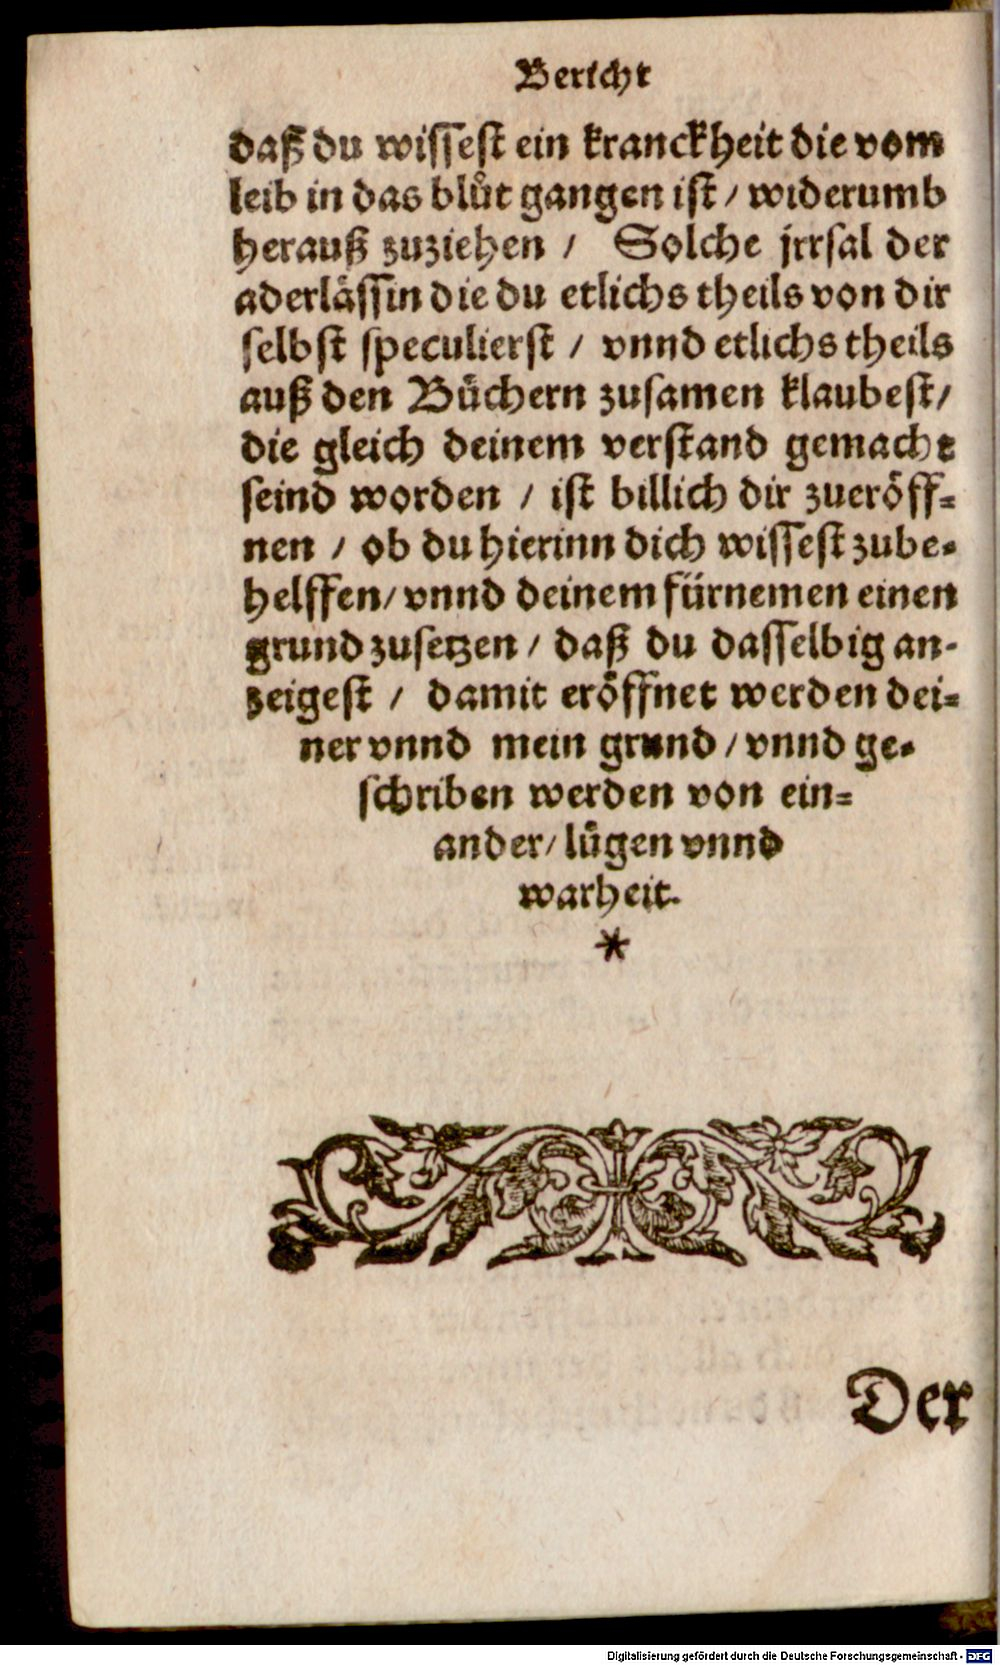 Bericht
daß du wissest ein kranckheit die vom
leib in das blůt gangen ist / widerumb
herauß zuziehen / Solche jrrsal der
aderlässin die du etlichs theils von dir
selbst speculierst / vnnd etlichs theils
auß den Büchern zusamen klaubest /
die gleich deinem verstand gemacht
seind worden / ist billich dir zueröff-
nen / ob du hierinn dich wissest zube-
helffen / vnnd deinem fürnemen einen
grund zusetzen / daß du dasselbig an-
zeigest / damit eröffnet werden dei-
ner vnnd mein grund / vnnd ge-
schriben werden von ein-
ander / lügen vnnd
warheit.
*
Der
Digitalisierung gefördert durch die Deutsche Forschungsgemeinschaft - DFG